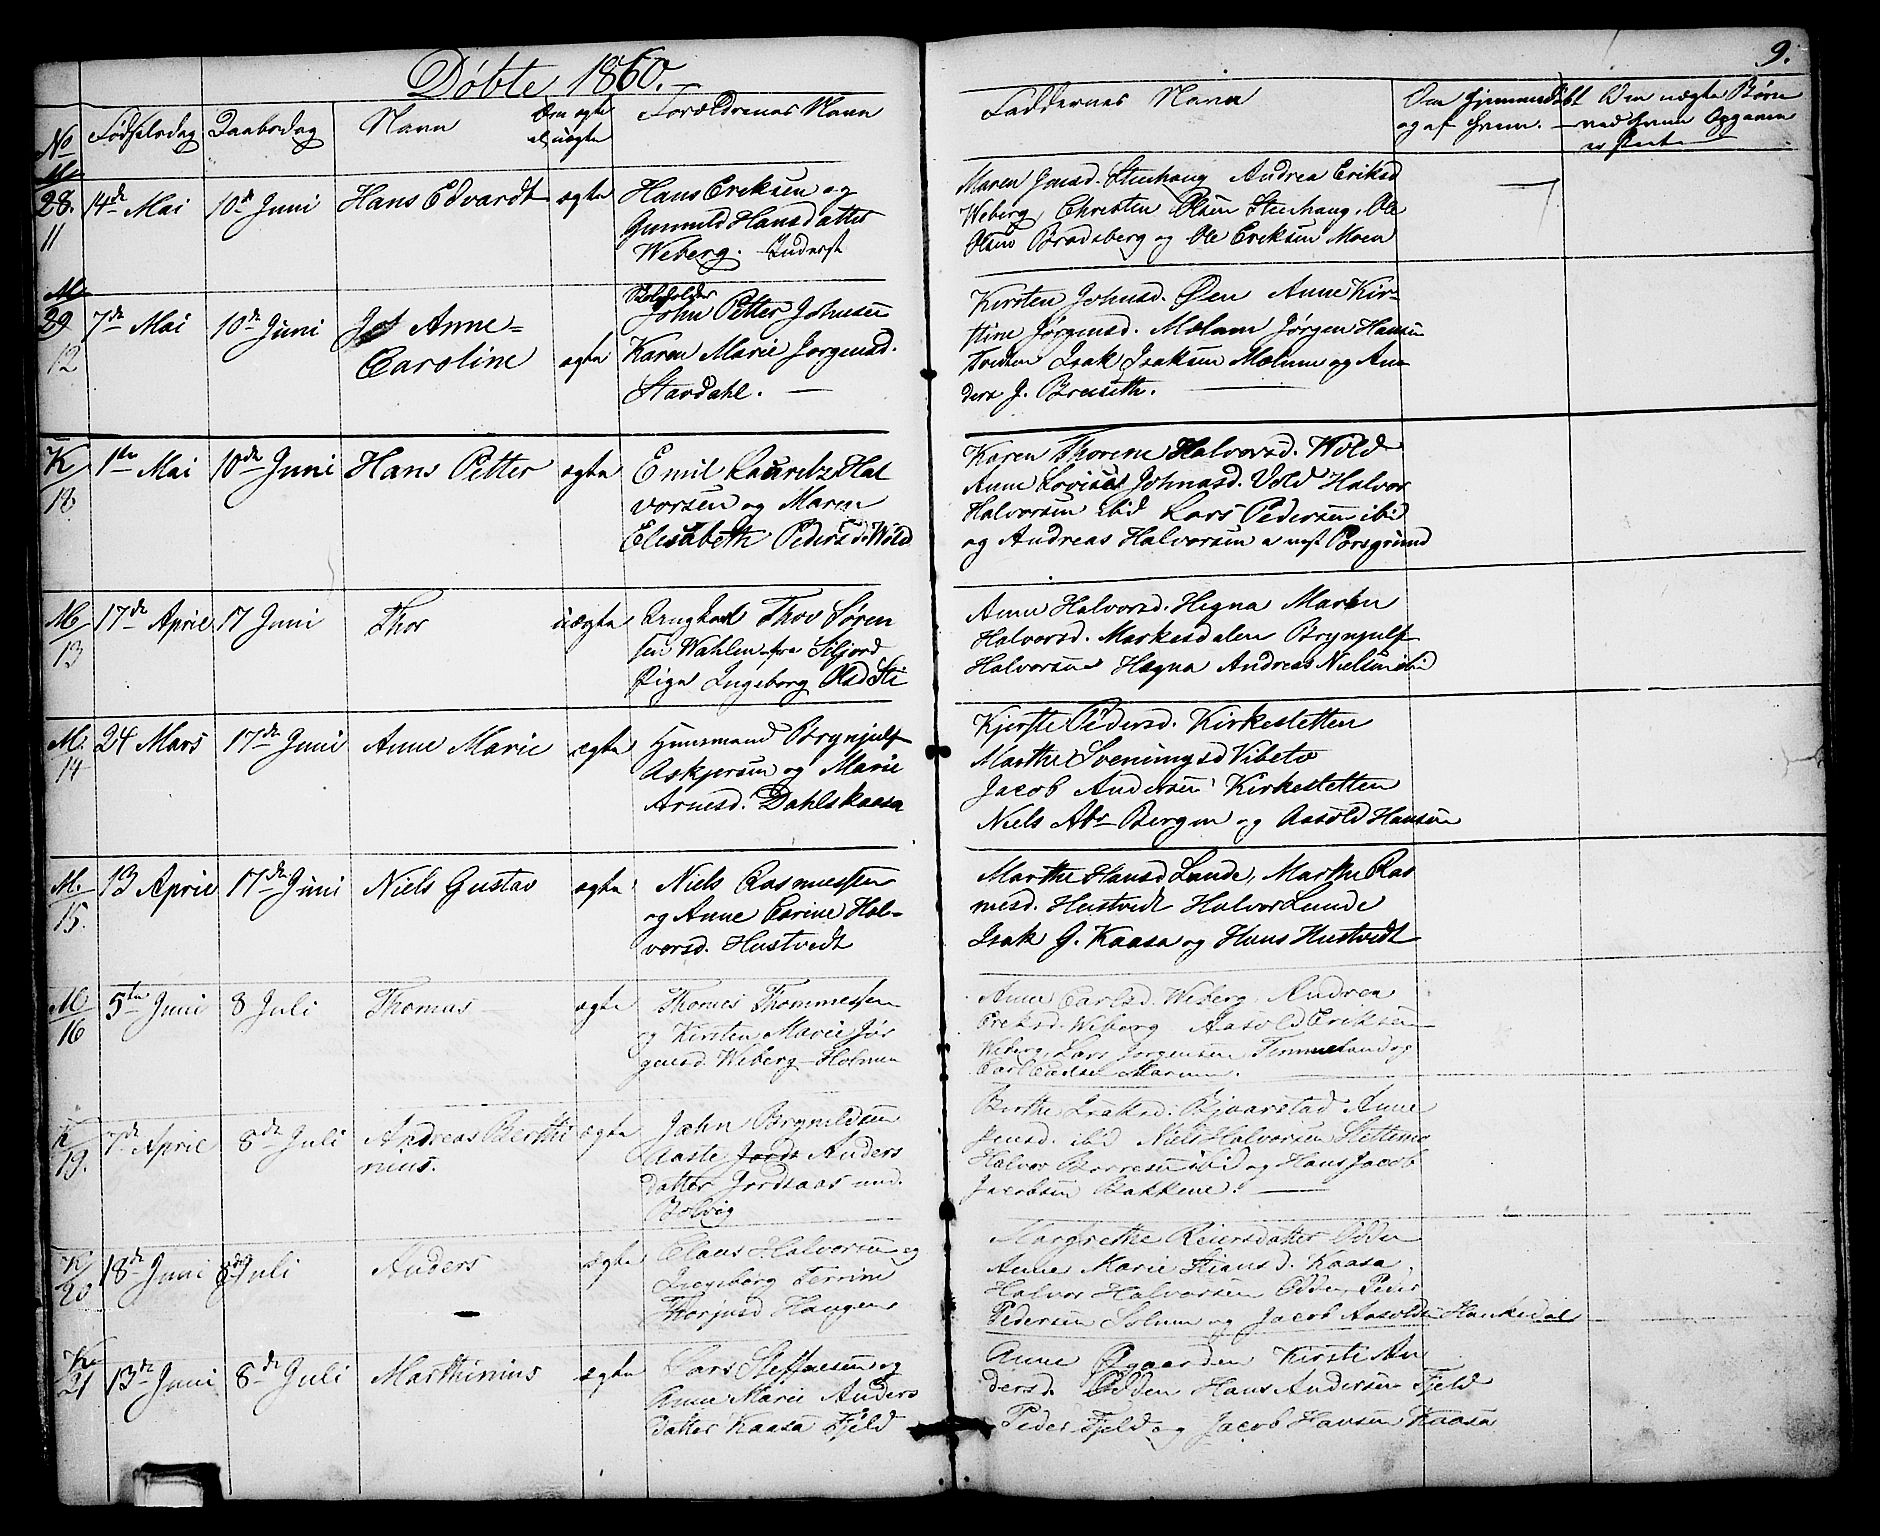 Døbte 1860.
9.
No
Fødselsdag
Daabsdag
Navn
Om ægte
el. uægte
Forældrenes Navn
Faddernes Navn
Om hjemmedøbt
og af hvem.
Om uægte Børn
ved hvem Opgaven
er skeet
28.
11
14de Mai
10de Juni
Hans Edvardt
ægte
Hans Eriksen og
Gunnild Hansdatter
Weberg. Inderst
Maren Jensd. Steehaug Andrea Eriksd
Weberg, Christen Olsen Steehaug, Ole
Olsen Bradsberg og Ole Eriksen Moen
M.
29
12
7de Mai
10de Juni
Anne
Caroline
ægte
Skoleholder
John Petter Johnsen
Karen Marie Jorgensd.
Stavdahl.
Kirsten Johnsd. Øen Anne Kir-
stine Jørgensd. Mælum Jørgen Hansen
Tvedten Isak Isaksen Mælum og An-
ders J. Breiseth.
K
18
1ste Mai
10de Juni
Hans Petter
ægte
Emil Lauritz Hal
vorsen og Maren
Elisabeth Pedersd. Wold
Karen Thorene Halvorsd. Wold
Anne Lovise Johnasd. Vold Halvor
Halvorsen ibid Lars Pedersen ibid
og Andreas Halvorsen a vest Porsgrund
M
13
17de April
17 Juni
Thor
uægte
Ungkarl Thov Søren
sen Wahlen fra Siljord
Pige Ingeborg Olsd Sti
Anne Halvorsd. Hegna Maren
Halvorsd. Markesdalen Brynjulf
Halvorsen Hægna Andreas Nielsen ibid
M.
14
24 Mars
17de Juni
Anne Marie
ægte
Huusmand Brynjulf
Askjersen og Marie
Arnesd. Dahlskaasa
Kjerste Pedersd. Kirkestetten
Marthe Sveningsd Vibeto
Jacob Andersen Kirkestetten
Niels Abr Bergen og Aasold Hansen
M.
15.
13 April
17de Juni
Niels Gustav
ægte
Niels Rasmussen
og Anne Carine Hal-
vorsd. Hustvedt
Marthe Hansd Lunde, Marthe Ras
mesd. Hustvedt Halvor Lunde
Isak J. Kaasa og Hans Hustvedt
M
16
5te Juni
8 Juli
Thomas
ægte
Thomes Thommessen
og Kirsten Marie Jør
gensd. Weberg-Holmen
Anne Carlsd. Weberg, Andrea
Eriksd. Weberg Aasold Eriksen
Weberg, Lars Jorgensen Temmeland og
K
19.
7de April
8de Juli
Andreas Berthi
nius.
ægte
John Brynildsen
Aaste Jords Anders
datter Jordsaas und.
Bolvig
Berthe Isaksd. Bjaarstad Anne
Jensd. ibid Niels Halvorsen Slettemo
Halvor Borresen ibid og Hans Jacob
Jacobsen Bakkene.
K
20
18de Juni
8de Juli
Anders
ægte
Claus Halvorsen og
Ingeborg Terrine
Thorjusd Haugen
Margrethe Reiersdatter Odden
Anne Marie Stiansd. Kaasa,
Halvor Halvorsen Odden Peder
Pedersen Solum og Jacob Aasoldsen Haukedal
K
21
13de Juni
8de Juli
Marthinius
ægte
Lars Steffensen og
Anne Marie Anders
datter Kaasa Fjeld
Anne Øgaarden Kirsti An
dersd. Odden Hans Andersen Fjeld
Peder Fjeld og Jacob Hansen Kaasa